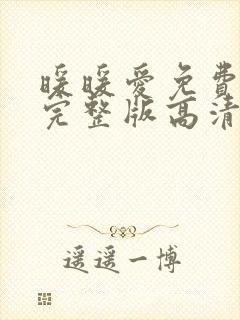 暖暖爱免费
完整版高清
遥遥一博